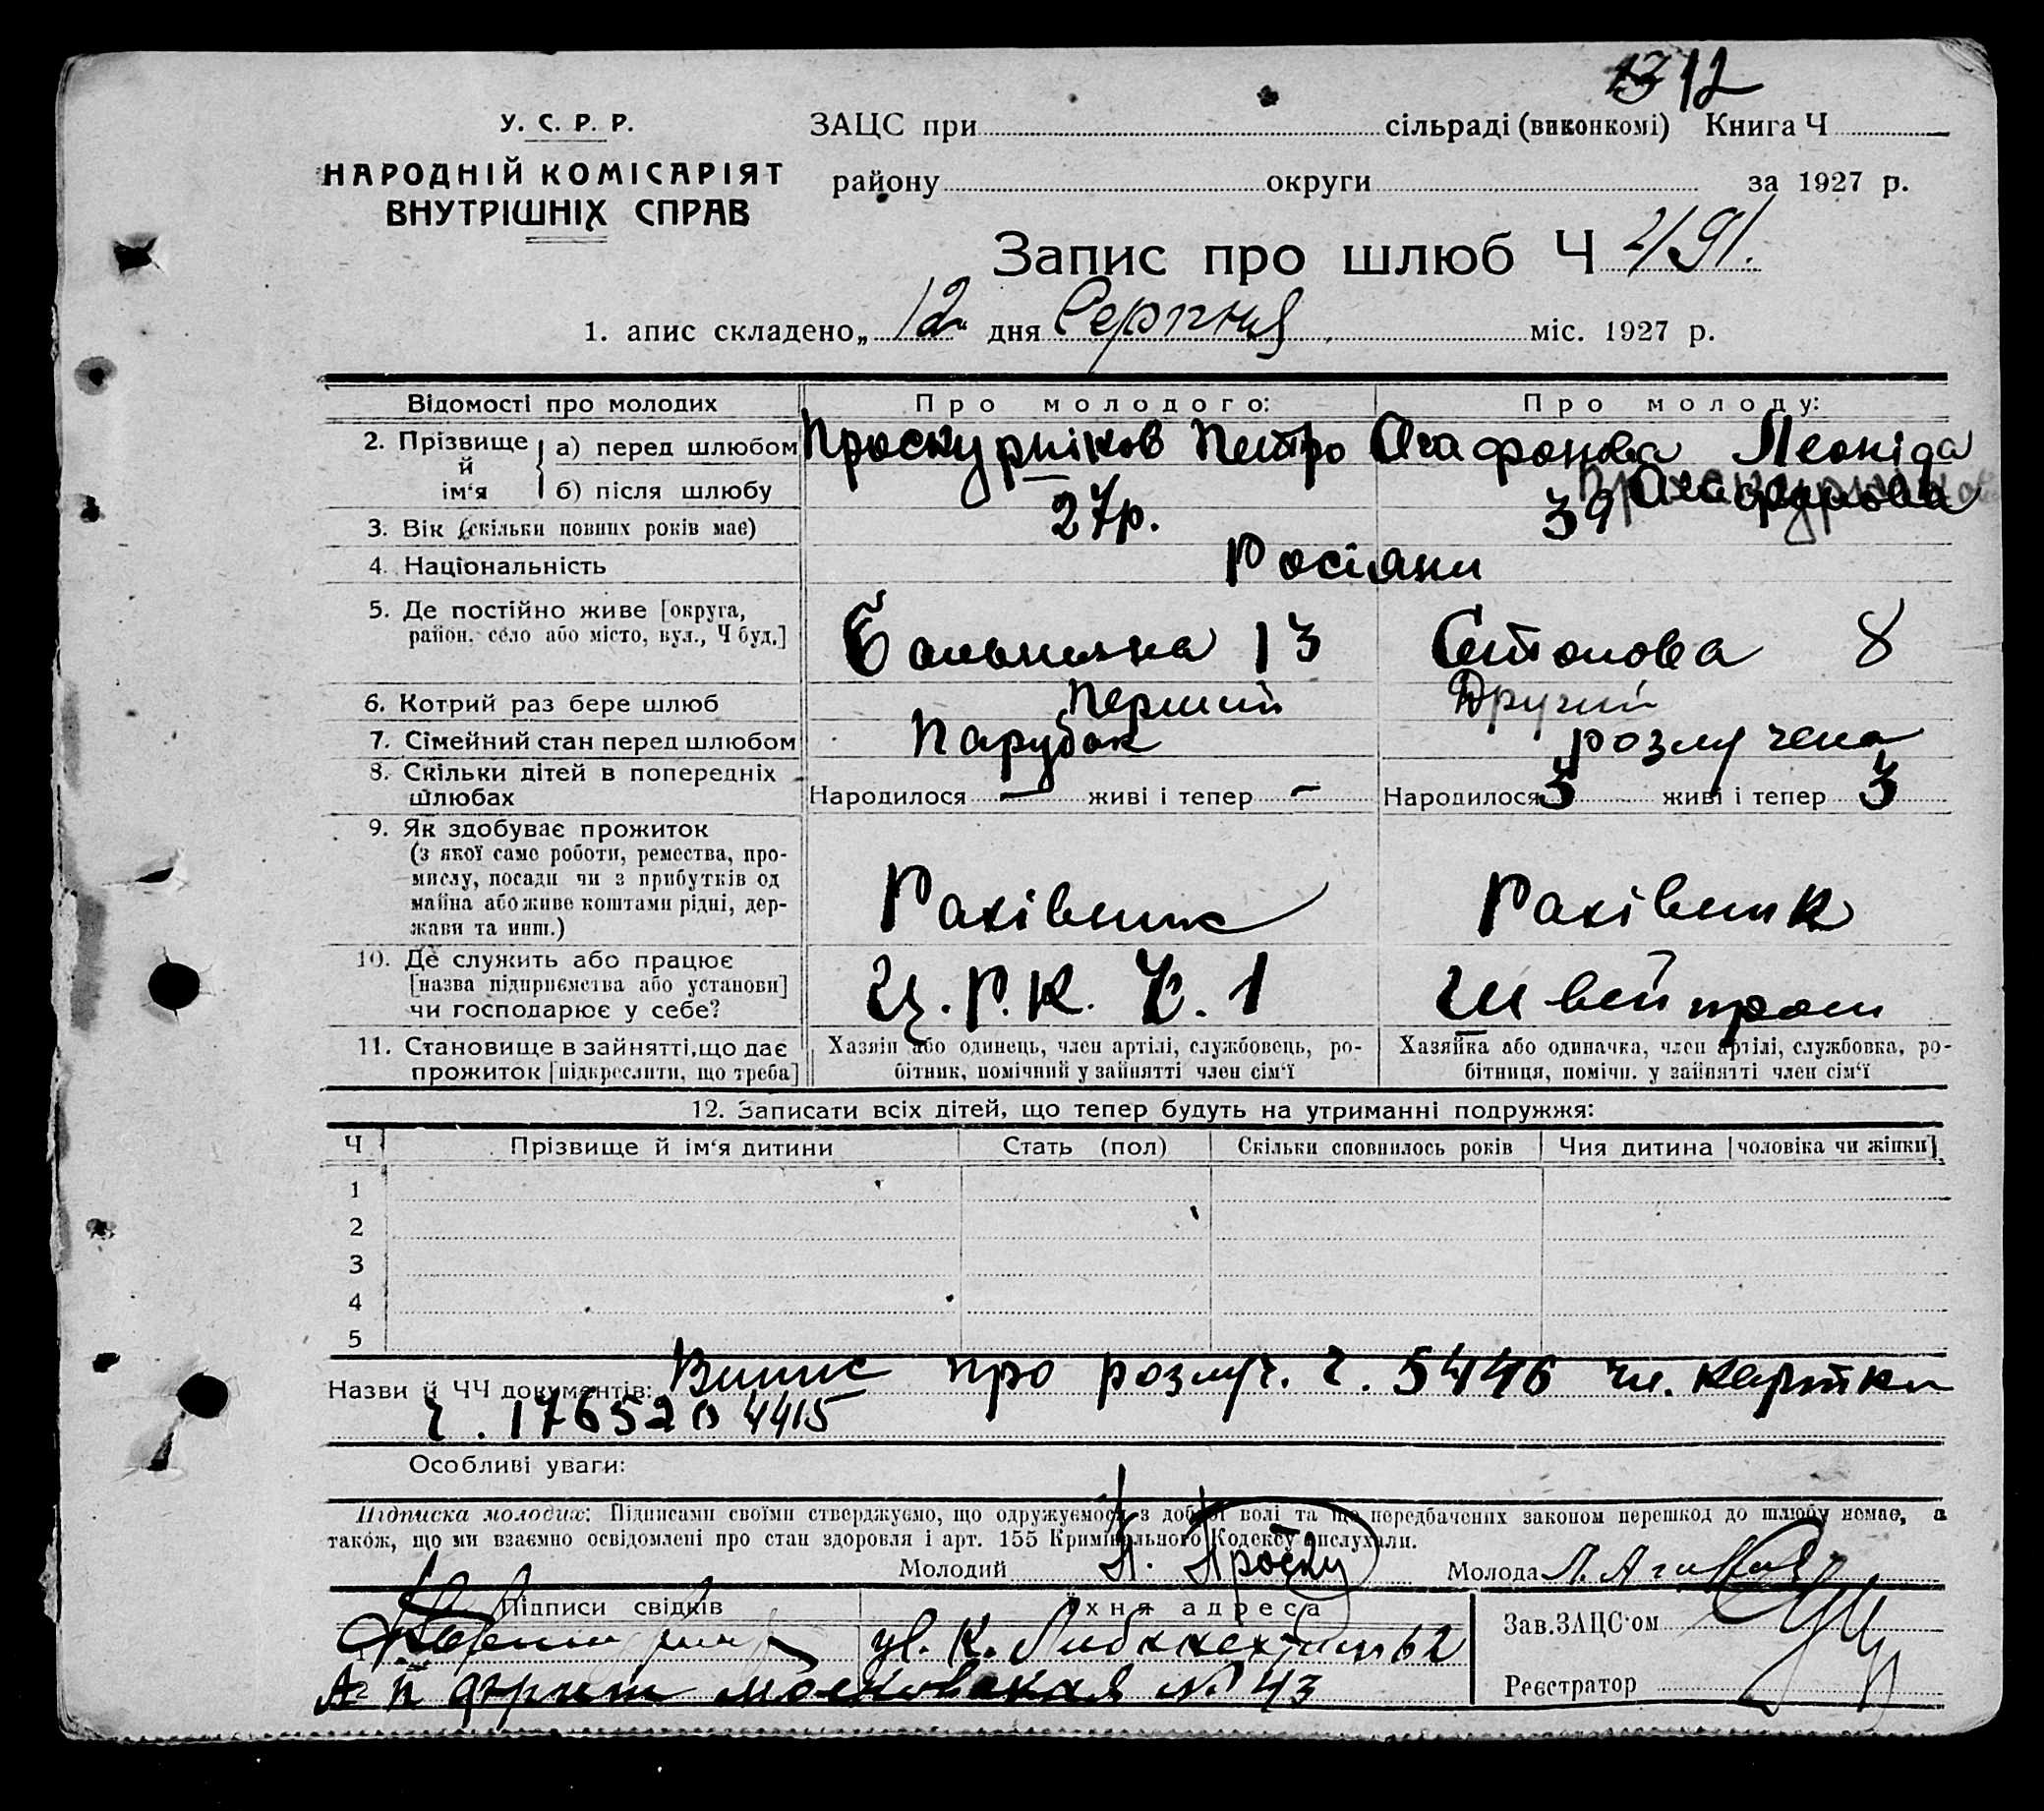 1312
У. С. Р. Р.
НАРОДНІЙ КОМІСАРІЯТ
ВНУТРІШНІХ СПРАВ
ЗАЦС при сільраді (виконкомі) Книга Ч
району округи за 1927 р.
Запис про шлюб Ч 2191.
1. апис складено „12“ дня Серпня міс. 1927 р.
Відомості про молодих Про молодого: Про молоду:
2. Прізвище й ім‘я а) перед шлюбом Проскурніков Петро Агафонова Леоніда
б) після шлюбу — Агафонова
3. Вік (скільки повних років має) 27р. 39
4. Національність Росіяни
5. Де постійно живе [округа, район, село або місто, вул., Ч буд.] 13 8
6. Котрий раз бере шлюб Перший Другий
7. Сімейний стан перед шлюбом Парубок розлучена
8. Скільки дітей в попередніх шлюбах Народилося — живі і тепер — Народилося 3 живі і тепер 3
9. Як здобуває прожиток
(з якої саме роботи, ремества, про-
мислу, посади чи з прибутків од
майна або живе коштами рідні, дер-
жави та инш.) Рахівник Рахівник
10. Де служить або працює
[назва підприємства або установи]
чи господарює у себе? Ц. Р. К. Ч. 1 Швейпром
11. Становище в зайнятті, що дає
прожиток [підкреслити, що треба]
Хазяін або одинець, член артілі, службовець, ро-
бітник, помічний у зайнятті член сім‘ї
Хазяйка або одиначка, член артілі, службовка, ро-
бітниця, помічн. у зайнятті член сім‘ї
12. Записати всіх дітей, що тепер будуть на утриманні подружжя:
Ч Прізвище й ім‘я дитини Стать (пол) Скільки сповнилось років Чия дитина [чоловіка чи жінки]
1
2
3
4
5
Назви й ЧЧ документів: Випис про розлуч. ч. 5446 чл. картки
ч. 176520 4415
Особливі уваги:
Підписка молодих: Підписами своїми стверджуємо, що одружуємося з доброї волі та що передбачених законом перешкод до шлюбу немає, а
також, що ми взаємно освідомлені про стан здоровля і арт. 155 Кримінального Кодексу вислухали.
Молодий П. Проску Молода Л. Ага
Підписи свідків Їхня адреса
ул. К. Либкнехта 62
московская № 43
Зав. ЗАЦС‘ом
Реєстратор